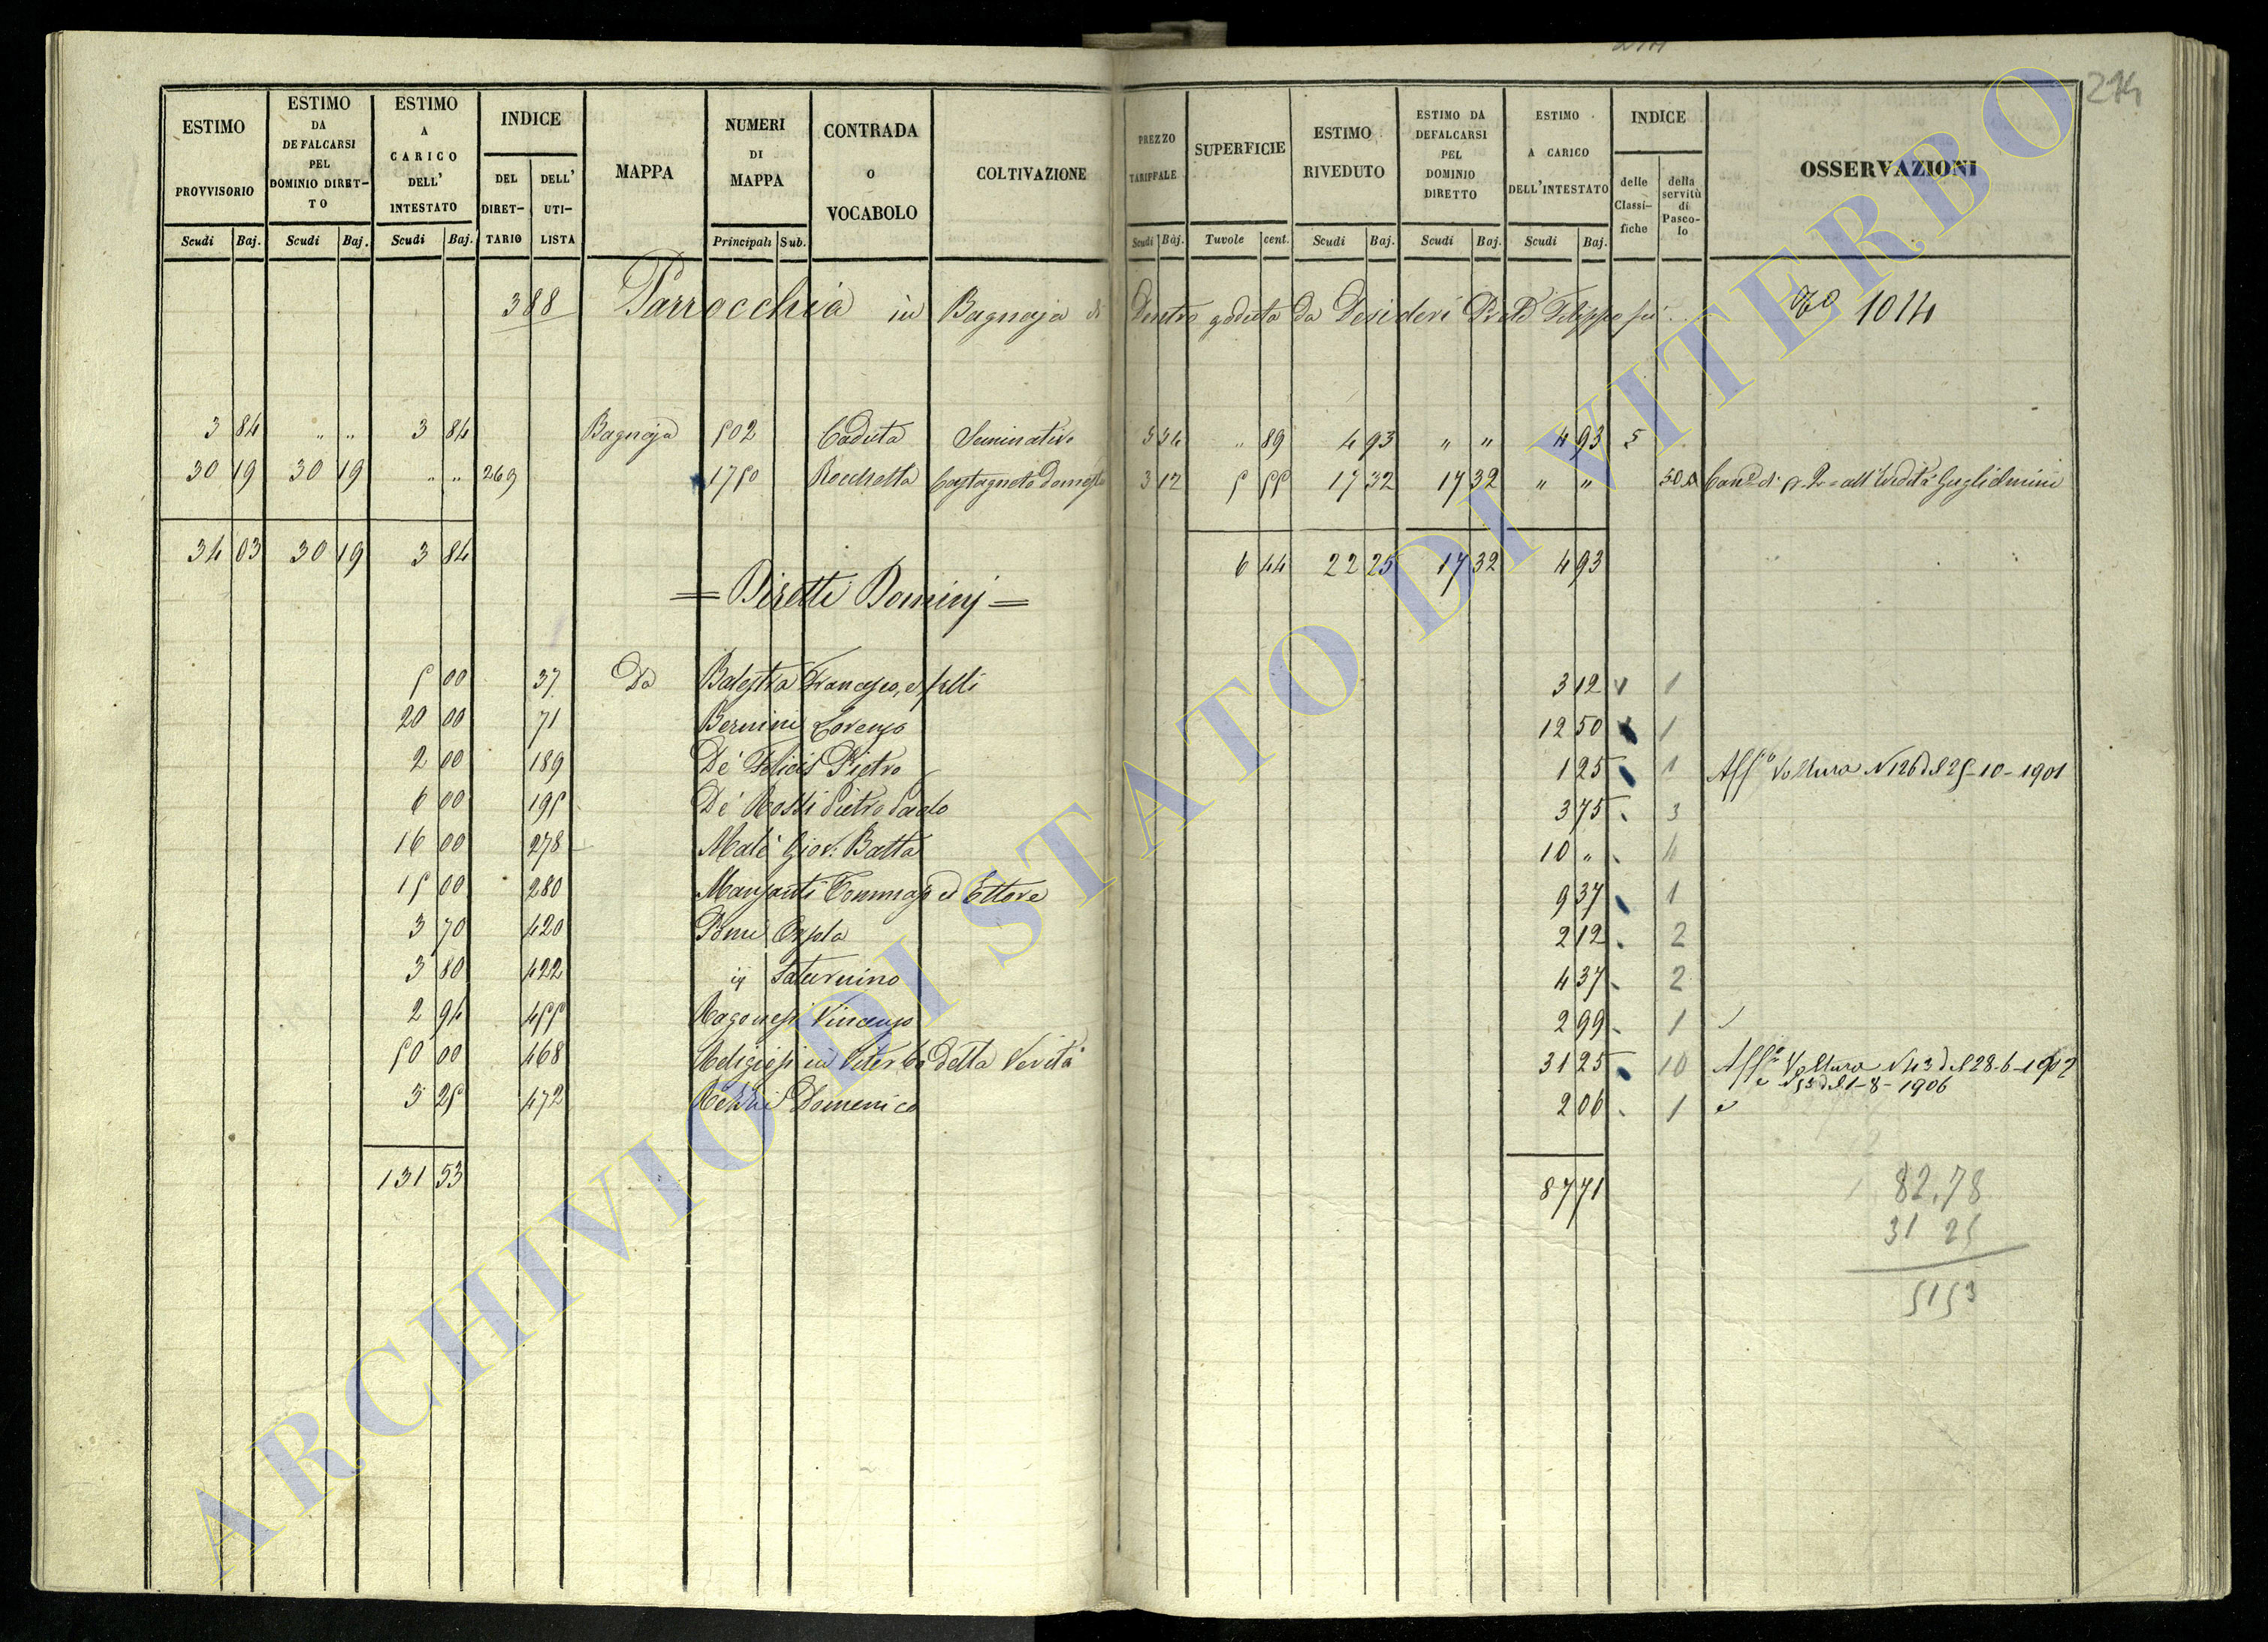 214
ESTIMO PROVVISORIO
ESTIMO DA DEFALCARSI PEL DOMINIO DIRET-TO
ESTIMO A CARICO DELL' INTESTATO
INDICE
DEL DIRET-TARIO
DELL' UTI-LISTA
MAPPA
NUMERI DI MAPPA
CONTRADA O VOCABOLO
COLTIVAZIONE
PREZZO TARIFFALE
SUPERFICIE
ESTIMO RIVEDUTO
ESTIMO DA DEFALCARSI PEL DOMINIO DIRETTO
ESTIMO A CARICO DELL'INTESTATO
INDICE
delle Classi-fiche
della servitù di Pasco-lo
OSSERVAZIONI
Scudi Baj. Scudi Baj. Scudi Baj. Principali Sub. Scudi Baj. Tavole cent. Scudi Baj. Scudi Baj. Scudi Baj.
388 Parrocchia in Bagnaja di Dentro goduta da Desideri Filippo fu 1014
3 84 " " 3 84 Bagnaja 502 Caduta Seminativo 5 54 " 89 4 93 " " 4 93 5
30 19 30 19 " " 269 1750 Rocchetta Castagneto domest 3 12 5 55 17 32 17 32 " " all'Eredità Guglielmini
34 03 30 19 3 84 6 44 22 25 17 32 4 93
= Diretti Dominj =
5 00 37 Da Balestra Francesco, e flli 3 12 1
20 00 71 Bernini Lorenzo 12 50 1
2 00 189 De' Felicis Pietro 1 25 1 Aff.to Voltura N 126 del 25-10-1901
6 00 195 De' Rossi Pietro Paolo 3 75 3
16 00 278 Malè Giov. Batta 10 " 4
15 00 280 Manzanti Tommaso ed Ettore 9 37 1
3 70 420 Pomi Orsola 2 12 2
3 80 422 id Saturnino 4 37 2
2 94 455 Ragonesi Vincenzo 2 99 1
50 00 468 Religiosi in Viterbo della Verità 31 25 10 Aff.to Voltura N 43 del 28-6-1902
e N 53 del 1-8-1906
3 25 472 Domenico 2 06 1
131 53 87 71
82.78
31 25
5153
ARCHIVIO DI STATO DI VITERBO